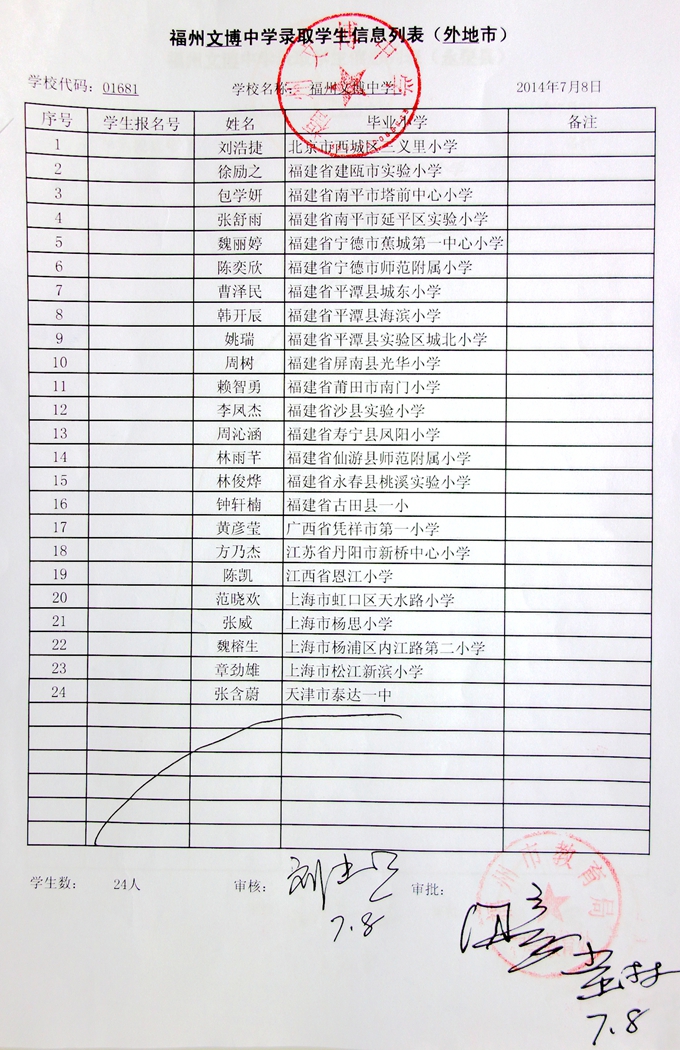 福州文博中学录取学生信息列表（外地市）
学校代码：01681 学校名称：福州文博中学 2014年7月8日
序号 学生报名号 姓名 毕业小学 备注
1 刘浩捷 北京市西城区三义里小学
2 徐励之 福建省建瓯市实验小学
3 包学妍 福建省南平市塔前中心小学
4 张舒雨 福建省南平市延平区实验小学
5 魏丽婷 福建省宁德市蕉城第一中心小学
6 陈奕欣 福建省宁德市师范附属小学
7 曹泽民 福建省平潭县城东小学
8 韩开辰 福建省平潭县海滨小学
9 姚瑞 福建省平潭县实验区城北小学
10 周树 福建省屏南县光华小学
11 赖智勇 福建省莆田市南门小学
12 李凤杰 福建省沙县实验小学
13 周沁涵 福建省寿宁县凤阳小学
14 林雨芊 福建省仙游县师范附属小学
15 林俊烨 福建省永春县桃溪实验小学
16 钟轩楠 福建省古田县一小
17 黄彦莹 广西省凭祥市第一小学
18 方乃杰 江苏省丹阳市新桥中心小学
19 陈凯 江西省恩江小学
20 范晓欢 上海市虹口区天水路小学
21 张威 上海市杨思小学
22 魏榕生 上海市杨浦区内江路第二小学
23 章劲雄 上海市松江新滨小学
24 张含蔚 天津市泰达一中
学生数： 24人 审核： 审批：
7.8
7.8
福州文博中学
福州市教育局